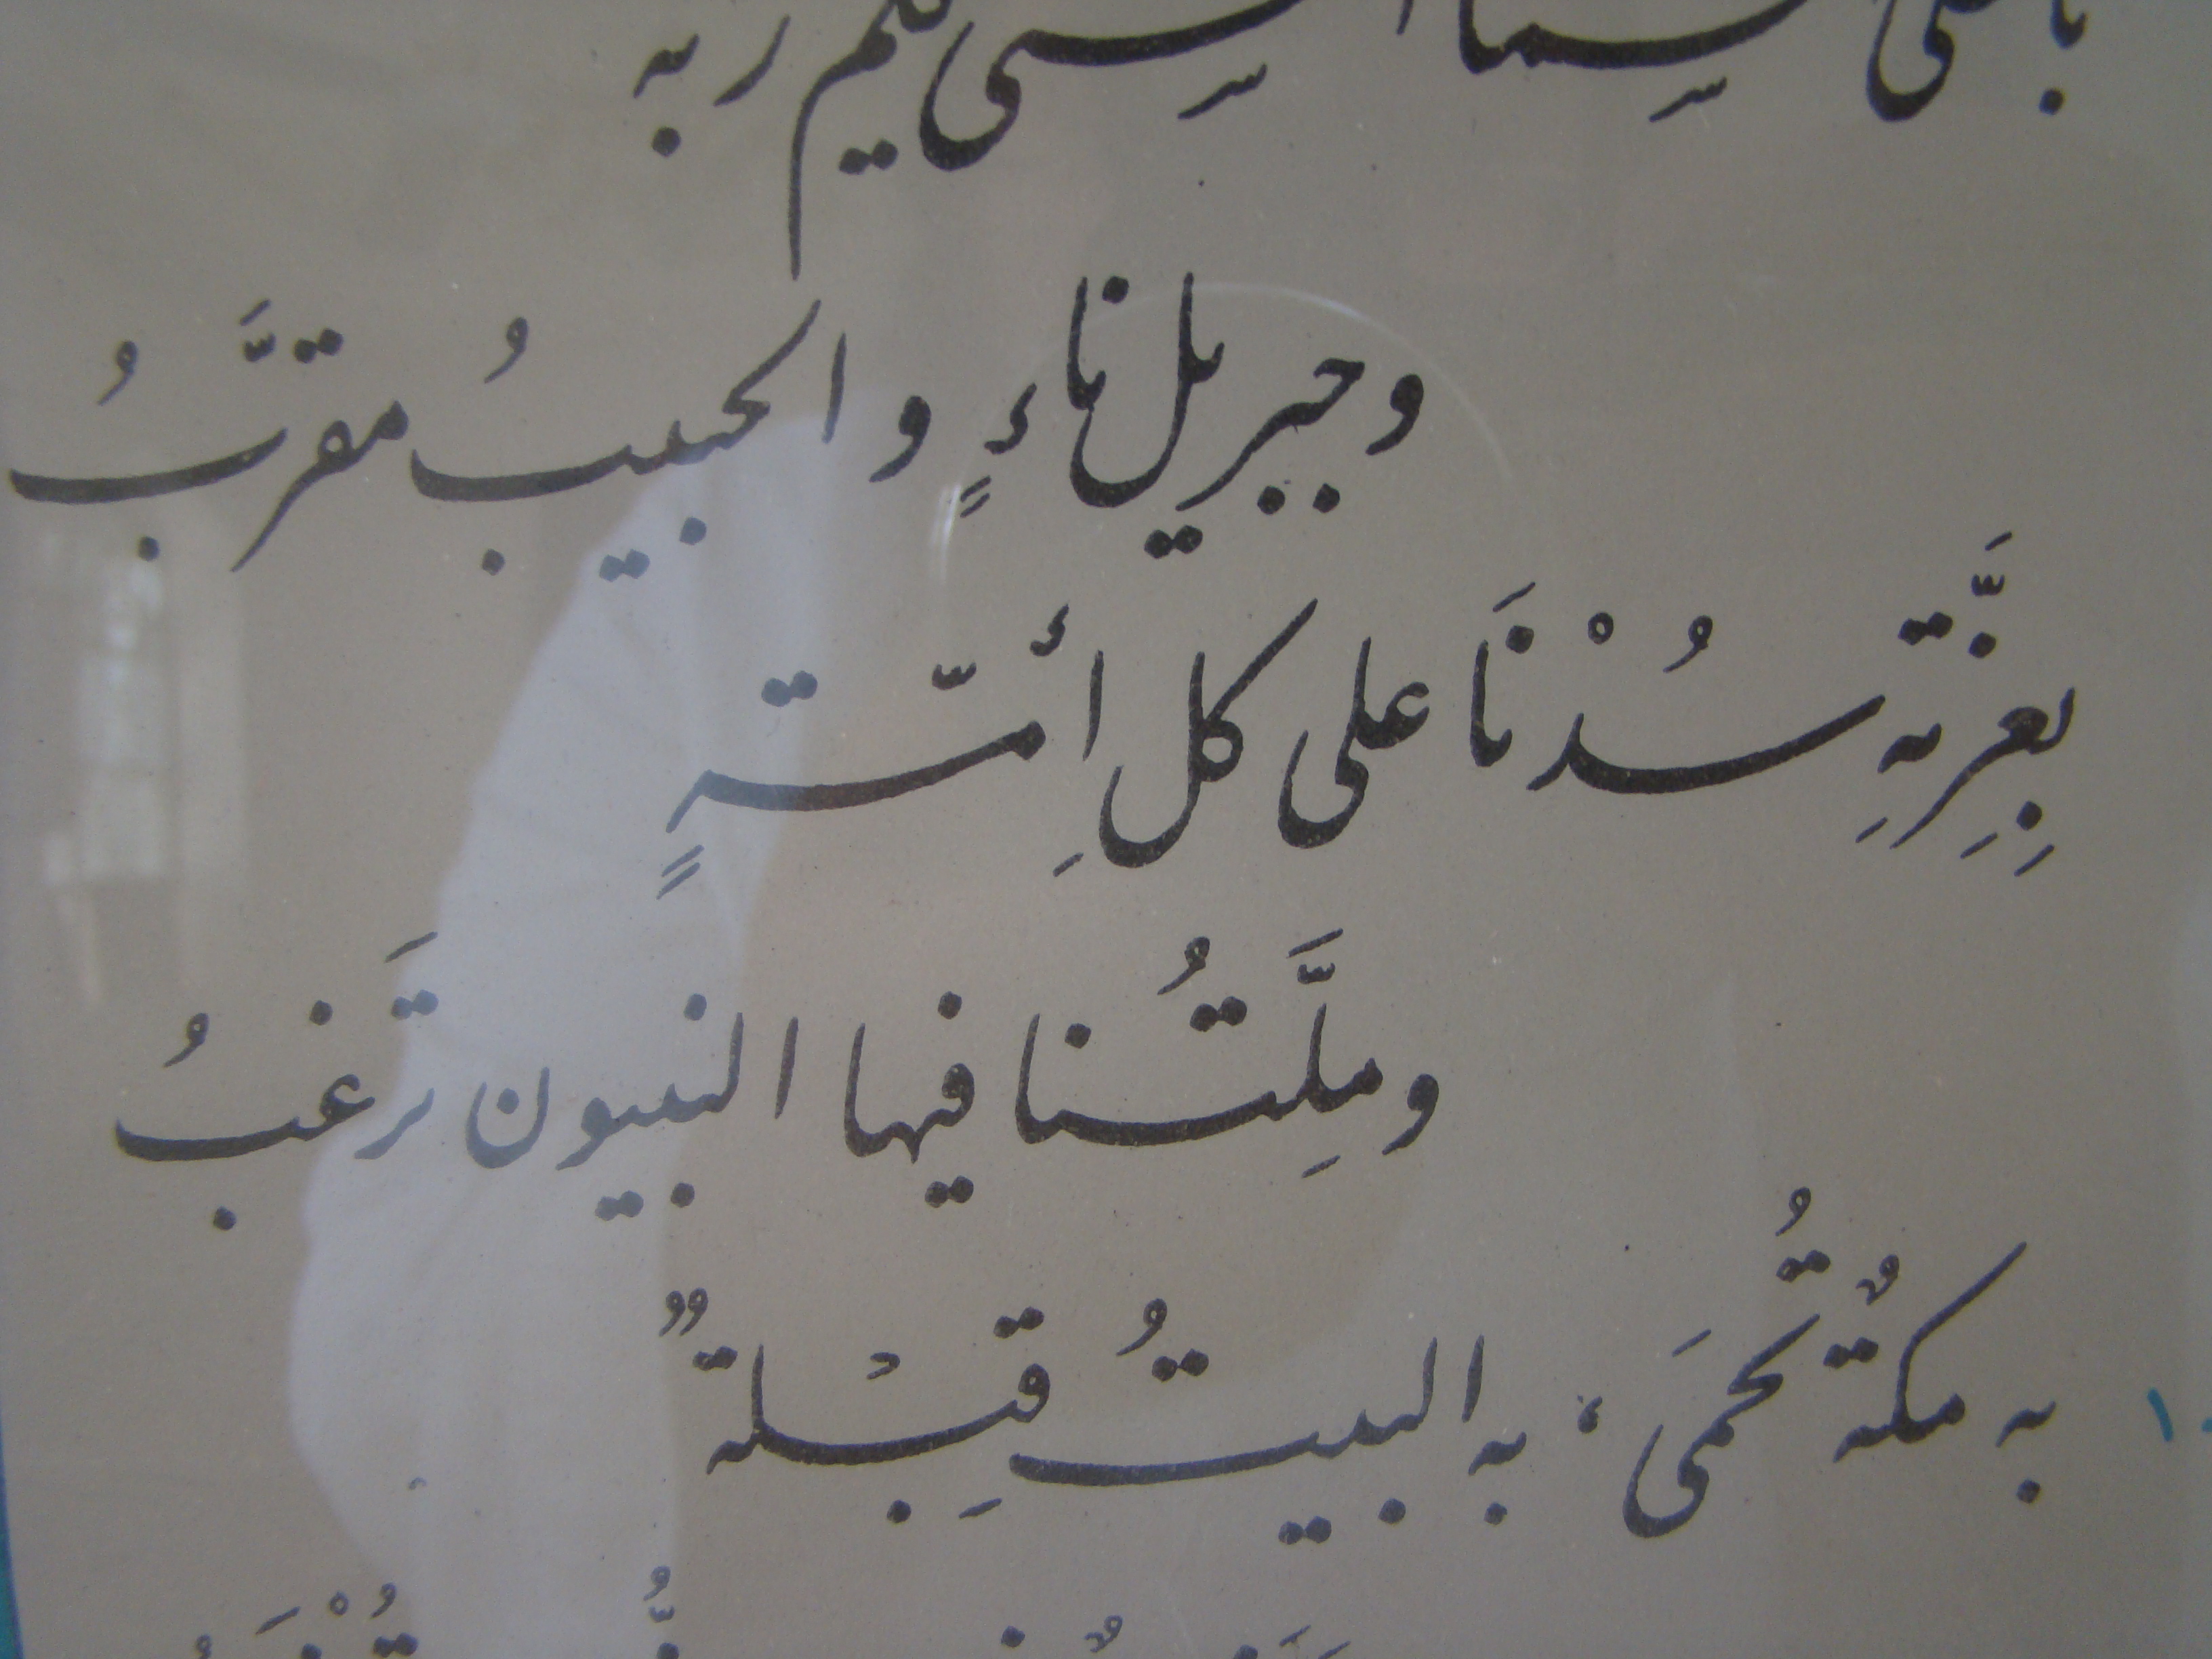 كليم ربه
وجبريل ناءٍ والحبيبُ مقرَّبُ
بِعِزَّتِهِ سُدْنَا على كلِ أمّةٍ
وملَّتُنا فيها النبيون تَرغبُ
١٠ به مكةٌ تُحمَى، به البيتُ قِبْلةٌ